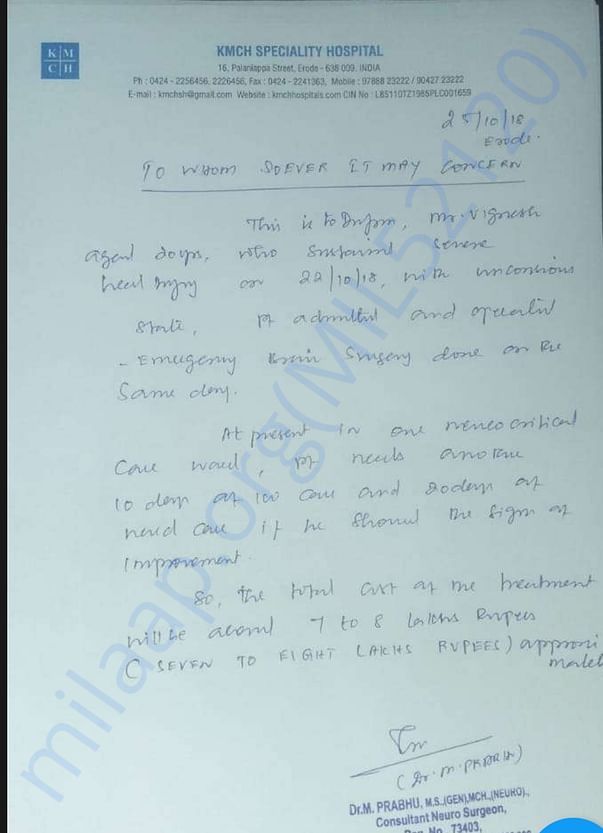 K M
C H
KMCH SPECIALITY HOSPITAL
16, Palaniappa Street, Erode - 638 009. INDIA
Ph : 0424 - 2256456, 2226456, Fax : 0424 - 2241363, Mobile : 97888 23222 / 90427 23222
E-mail : kmchsh@gmail.com Website : kmchhospitals.com CIN No : L85110TZ1985PLC001659
25/10/18
Erode.
TO WHOM SOEVER IT MAY CONCERN
This is to Inform, Mr. Vignesh
aged 20yrs, who sustained severe
head injury on 22/10/18, with unconsious
State, pt admitted and operated
- Emergency Brain Surgery done on the
Same day.
At present in our neuro critical
Care ward, pt needs another
10 days of ICU care and 20days of
ward care if he showed the sign of
Improvement.
So, the total cost of the treatment
will be around 7 to 8 lakhs Rupees
( SEVEN TO EIGHT LAKHS RUPEES) approxi
mately
(Dr. M. PRABHU)
Dr.M. PRABHU, M.S.,(GEN),MCH.,(NEURO).,
Consultant Neuro Surgeon,
Reg No. 73403,
milaap.org(MIL52120)